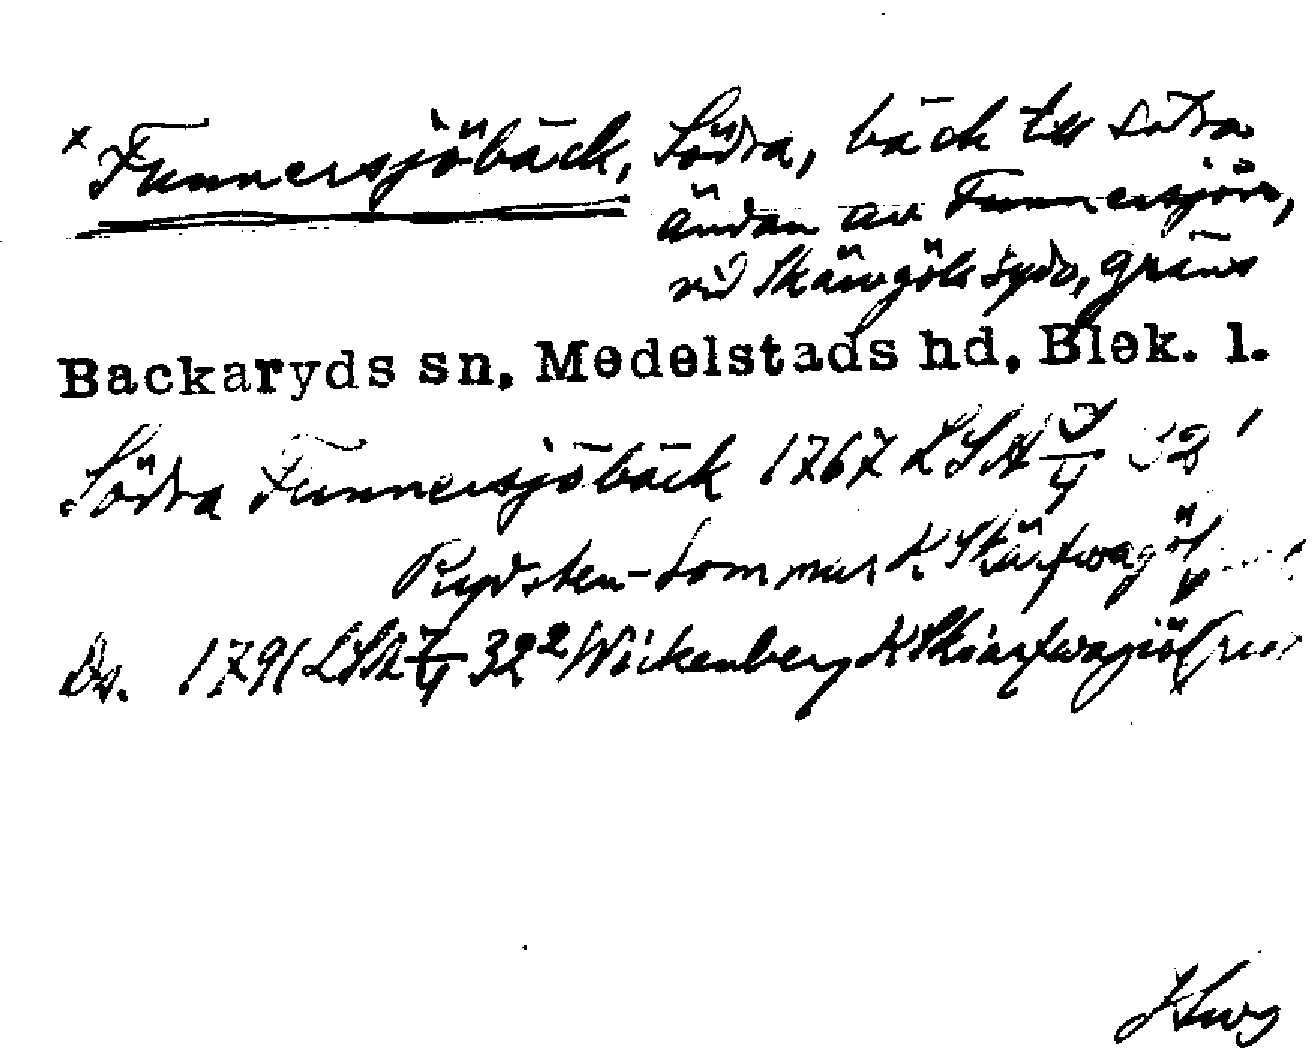 x Funnersjöbäck, Södra, bäck till södra
ändan av Funnersjön,
vid Skärvgöls sydv, gräns
Backaryds sn, Medelstads hd, Blek. l.
Södra Funnersjöbäck 1767 LSA 32 1
Rydsten-Sommar K Skärfwagöl
Ds. 1791 LSA 32 2 Wickenberg K Skiärfwagiöl